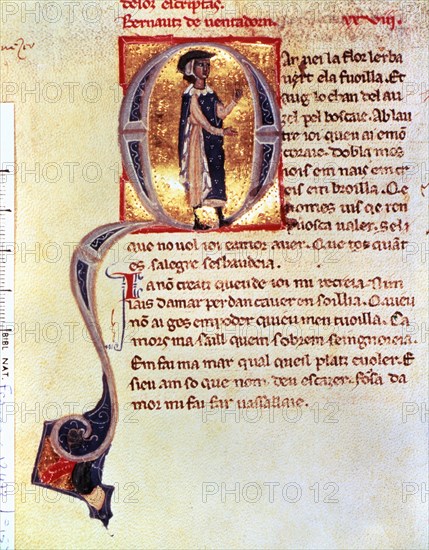 delor escriptas.
Bernautz de uentadorn. xxviij.
Can par la flor lerba
uert e la fuoilla. Et
aug lo chan del au
zel pel boscaie. Ab lau
tre ioi quen ai emō
coraie. Dobla mos
iois em nais em cr
eis em broilla. Qe
nomes uis qe ren
puosca ualer. Seli
que no uol ioi eamor auer. Que tot quāt
es salegre sesbaudeia.
Ia nō creatz qeu de ioi mi recreia. Nim
lais damar per dan cauer en soillia. Qaueu
nō ai ges en poder qieu men tuoilla. Ca
mors ma saill quem sobrem seingnoreia.
Em fai amar qual queil platz euoler. E
sieu am so que nom deu escazer. Fosa da
mor mi fai far uassallaie.
BIBL NAT.
PHOTO 12